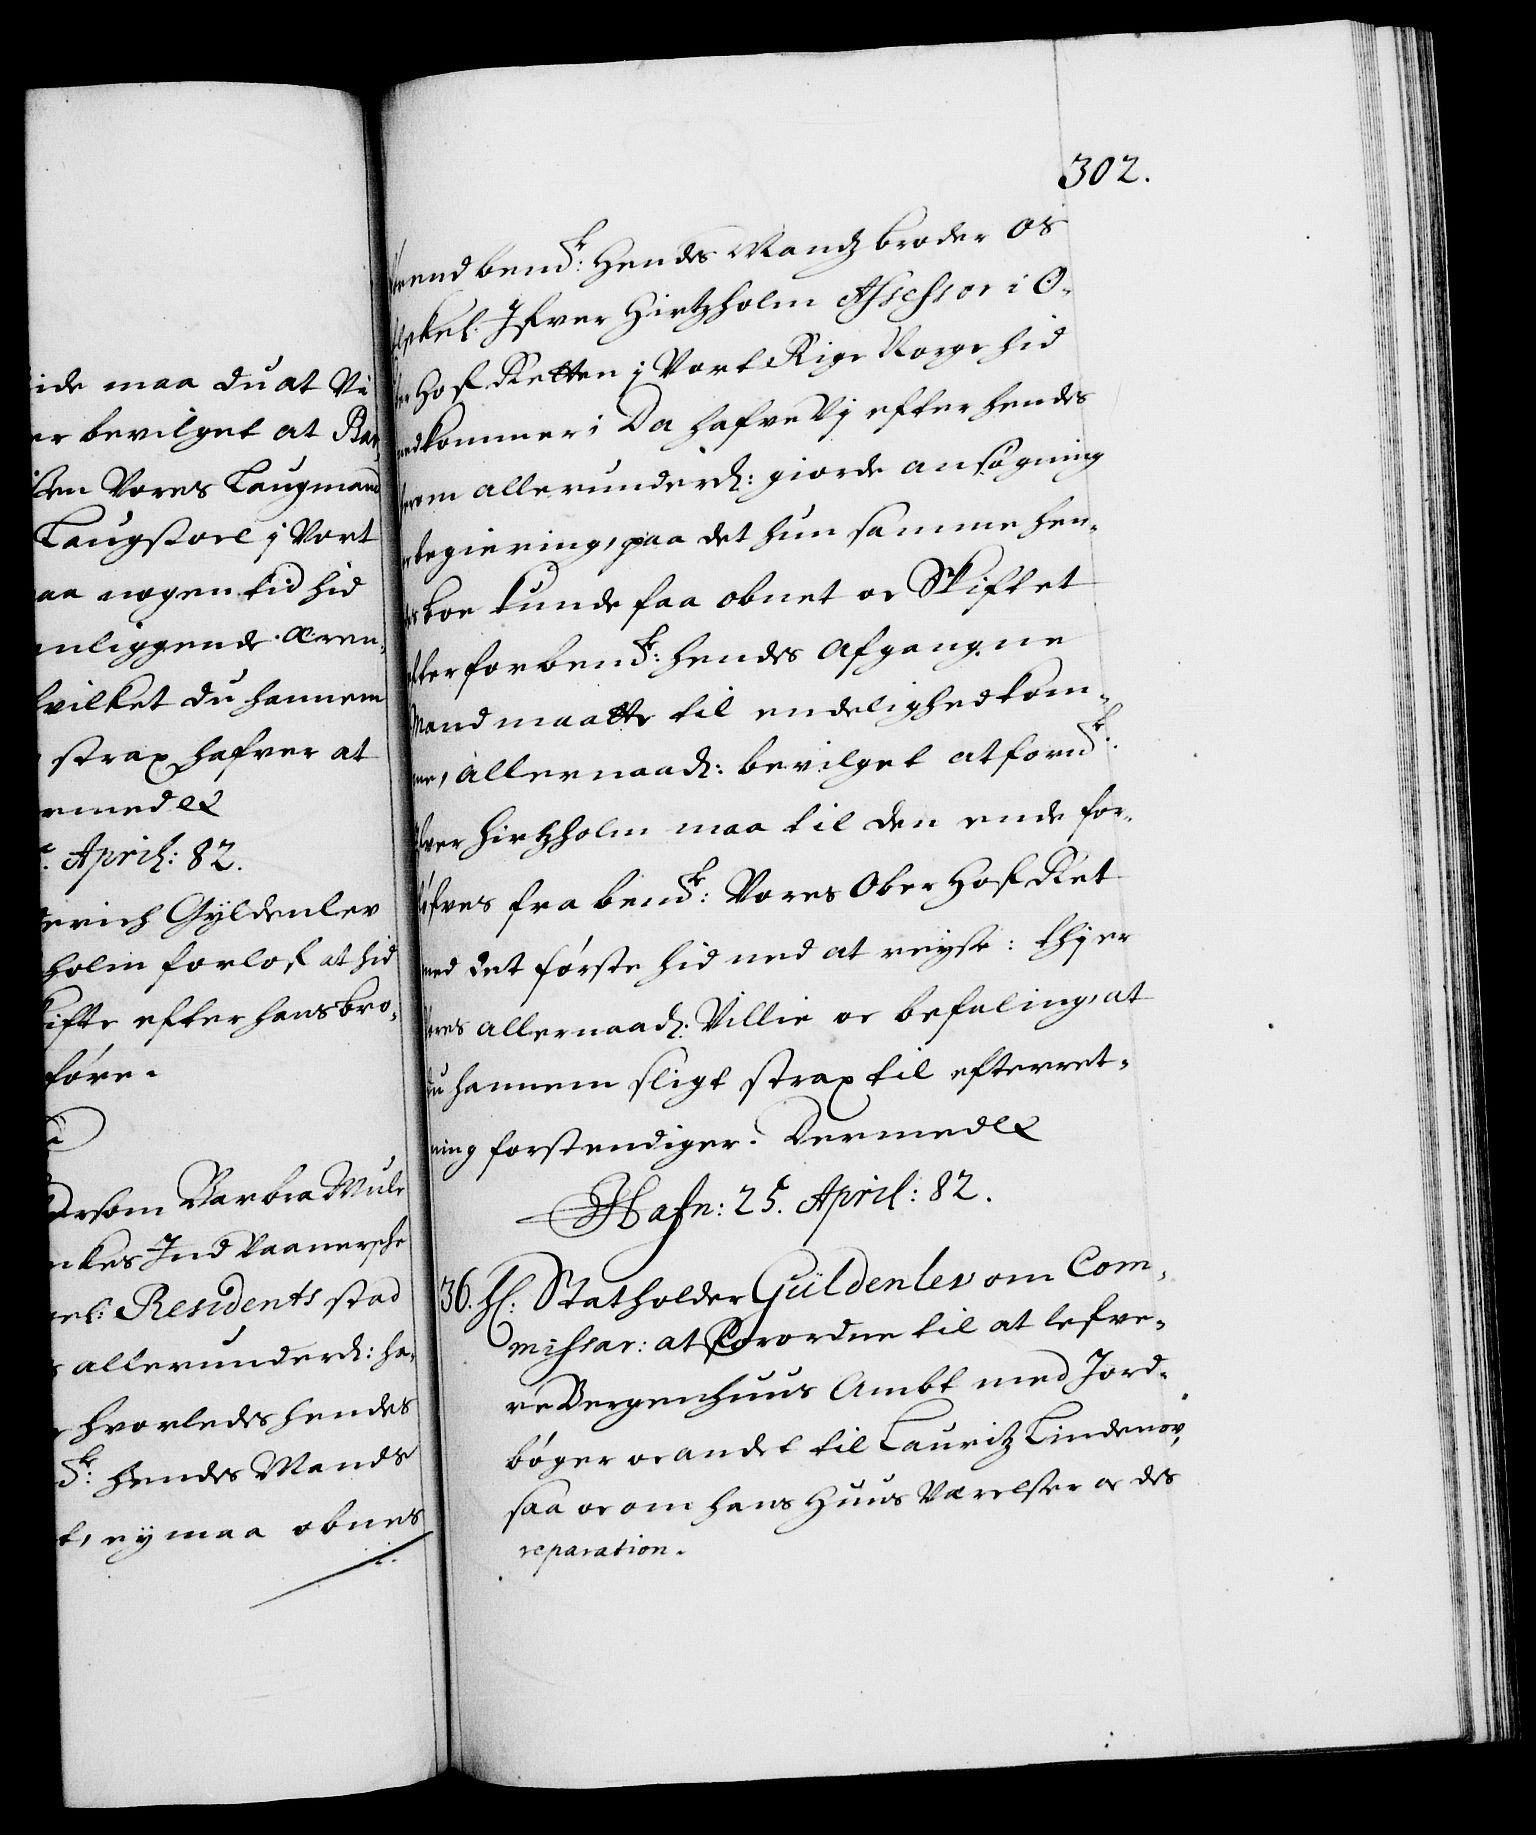 ide maa du at Vi
er bevilget at Ba
sten Vores Laugmand
Laugstoel i Vort
aa nogen tid hid
nliggende Æren-
hvilket du hannem
strax hafver at
ermed etc
. April: 82.
erich Gyldenlev
holm forlof at hid
kifte efter hans bro-
føre.
ersom Barbra Mule
nkes Ind Vaanersche
el: Residents stad
allerunderd: ha-
hvorledes hendes
dt: hendes Mands
t, ey maa obnes
302.
end bemdt: Hendes Mandz broder os
elskel: Ifver Hirtzholm Assessor i O-
ber Hof Retten i Vort Rige Norge hid
nedkommer; Da hafve Vj efter hendes
herom allerunderd: giorde ansøgning
begiering, paa det hun samme hen-
des boe kunde faa obnet oc Skiftet
efter forbemdt: hendes afgangne
Mand maatte til endelighed kom-
me, allernaad: bevilget at forndt:
Ifver Hirtzholm maa til den ende for-
løfves fra bemdt: Vores Ober Hof Ret
med det første hid ned at reyse: thj er
Vores allernaad: Villie oc befaling, at
du hannem sligt strax til efterret-
ning forstendiger. Dermed etc
Hafn: 25. April: 82.
36. H: Statholder Güldenlev om Com-
missar: at forordne til at lefve-
re Bergenhuus Ambt med Jord-
bøger oc andet til Lauritz Lindenov,
saa oc om hans Huus Værelser oc des
reparation.